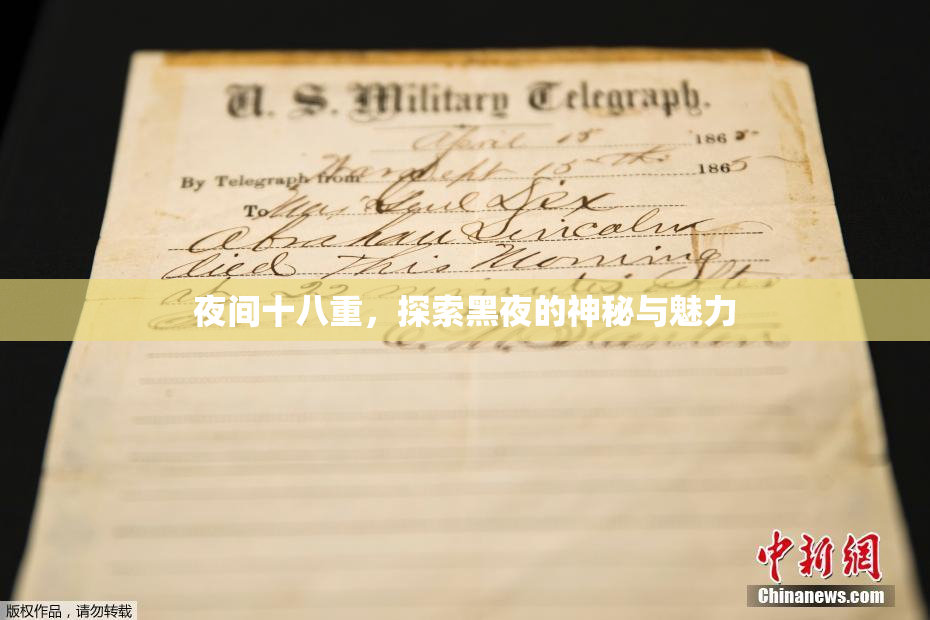 U. S. Military Telegraph.
April 15 1865
By Telegraph from War Dept 15th 1865
To Maj Genl Dix
Abraham Lincoln
died This Morning
at 22 minutes after
夜间十八重，探索黑夜的神秘与魅力
中新网
Chinanews.com
版权作品，请勿转载